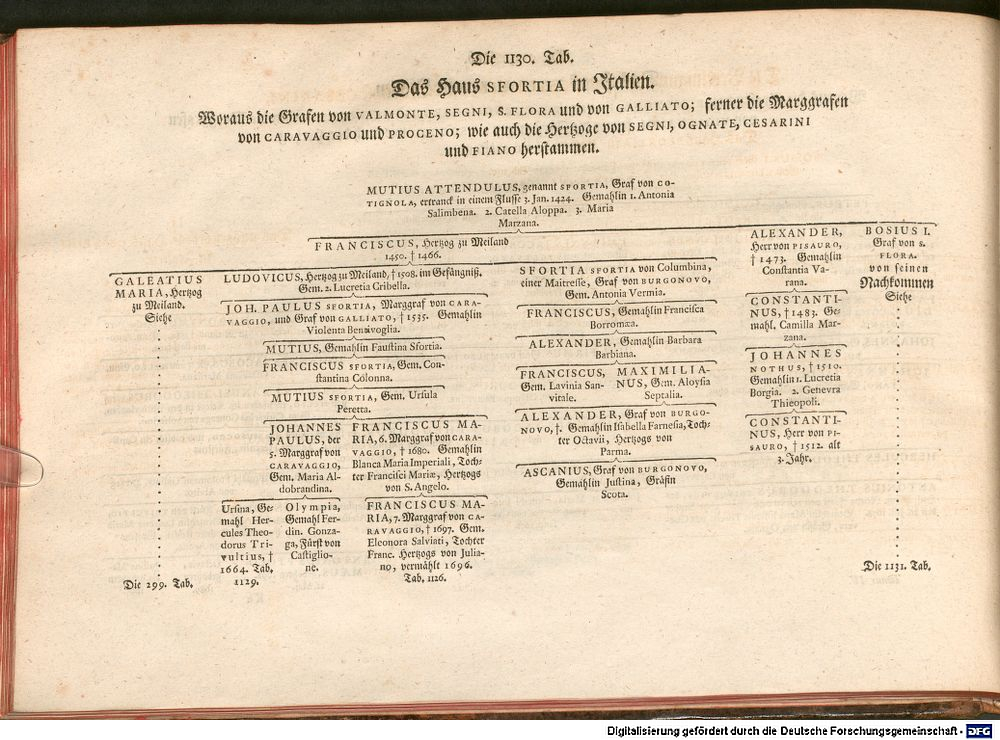 Die 1130. Tab.
Das Haus SFORTIA in Italien.
Woraus die Grafen von VALMONTE, SEGNI, S. FLORA und von GALLIATO; ferner die Marggrafen
von CARAVAGGIO und PROCENO; wie auch die Hertzoge von SEGNI, OGNATE, CESARINI
und FIANO herstammen.
MUTIUS ATTENDULUS, genannt SFORTIA, Graf von CO-
TIGNOLA, ertranck in einem Flusse 3. Jan. 1424. Gemahlin 1. Antonia
Salimbena. 2. Catella Aloppa. 3. Maria
Marzana.
FRANCISCUS, Hertzog zu Meiland
1450. † 1466.
GALEATIUS
MARIA, Hertzog
zu Meiland.
Siehe
Die 299. Tab.
LUDOVICUS, Hertzog zu Meiland, † 1508. im Gefängniß.
Gem. 2. Lucretia Cribella.
JOH. PAULUS SFORTIA, Marggraf von CARA-
VAGGIO, und Graf von GALLIATO, † 1535. Gemahlin
Violenta Bentivoglia.
MUTIUS, Gemahlin Faustina Sfortia.
FRANCISCUS SFORTIA, Gem. Con-
stantina Colonna.
MUTIUS SFORTIA, Gem. Ursula
Peretta.
JOHANNES
PAULUS, der
5. Marggraf von
CARAVAGGIO,
Gem. Maria Al-
dobrandina.
FRANCISCUS MA-
RIA, 6. Marggraf von CARA-
VAGGIO, † 1680. Gemahlin
Blanca Maria Imperiali, Toch-
ter Francisci Mariæ, Hertzogs
von S. Angelo.
Ursina, Ge-
mahl Her-
cules Theo-
dorus Tri-
vultius, †
1664. Tab.
1129.
Olympia,
Gemahl Fer-
din. Gonza-
ga, Fürst von
Castiglio-
ne.
FRANCISCUS MA-
RIA, 7. Marggraf von CA-
RAVAGGIO, † 1697. Gem.
Eleonora Salviati, Tochter
Franc. Hertzogs von Julia-
no, vermählt 1696.
Tab. 1126.
SFORTIA SFORTIA von Columbina,
einer Maitresse, Graf von BURGONOVO,
Gem. Antonia Vermia.
FRANCISCUS, Gemahlin Francisca
Borromæa.
ALEXANDER, Gemahlin Barbara
Barbiana.
FRANCISCUS,
Gem. Lavinia San-
vitale.
MAXIMILIA-
NUS, Gem. Aloysia
Septalia.
ALEXANDER, Graf von BURGO-
NOVO, †. Gemahlin Isabella Farnesia, Toch-
ter Octavii, Hertzogs von
Parma.
ASCANIUS, Graf von BURGONOVO,
Gemahlin Justina, Gräfin
Scota.
ALEXANDER,
Herr von PISAURO,
† 1473. Gemahlin
Constantia Va-
rana.
CONSTANTI-
NUS, † 1483. Ge-
mahl. Camilla Mar-
zana.
JOHANNES
NOTHUS, † 1510.
Gemahlin 1. Lucretia
Borgia. 2. Genevra
Thieopoli.
CONSTANTI-
NUS, Herr von PI-
SAURO, † 1512. alt
3. Jahr.
BOSIUS I.
Graf von S.
FLORA.
von seinen
Nachkommen
Siehe
Die 1131. Tab.
Digitalisierung gefördert durch die Deutsche Forschungsgemeinschaft - DFG